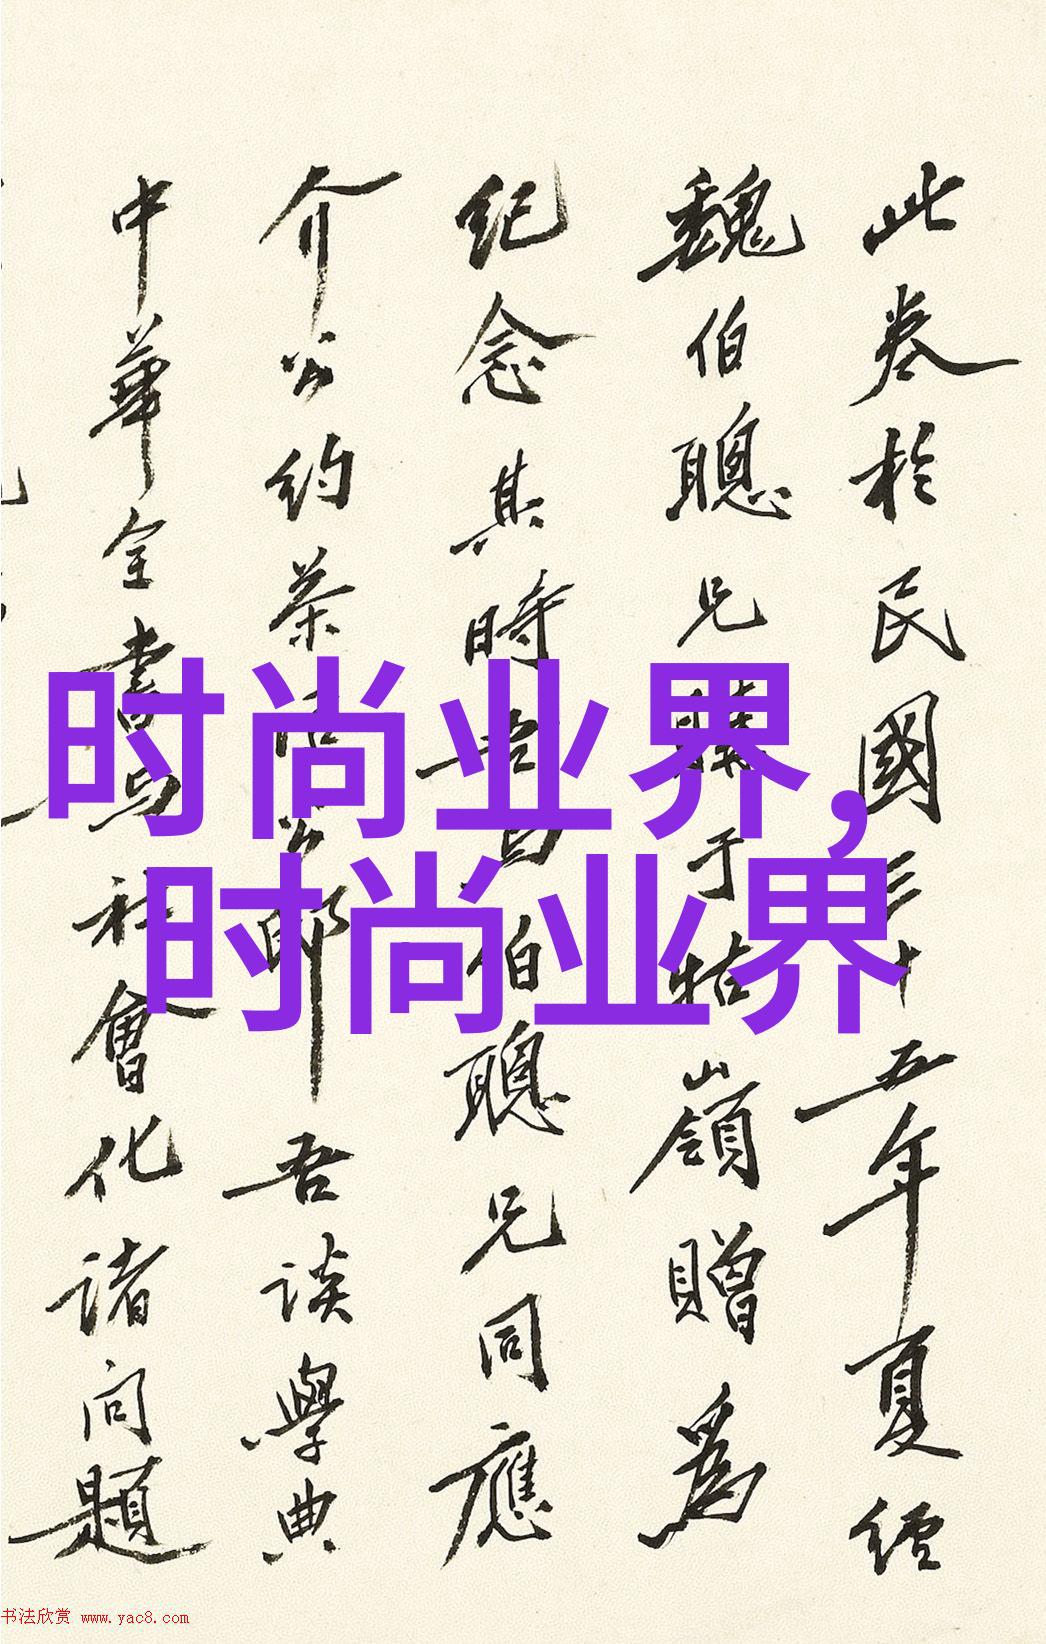 此卷於民國三十五年夏經
魏伯聰兄購于牯嶺贈爲
紀念其時曾由伯聰兄同應
介公約茶 吾談學典
中華全書与社會化诸问題
时尚业界，
时尚业界
书法欣赏 www.yac8.com